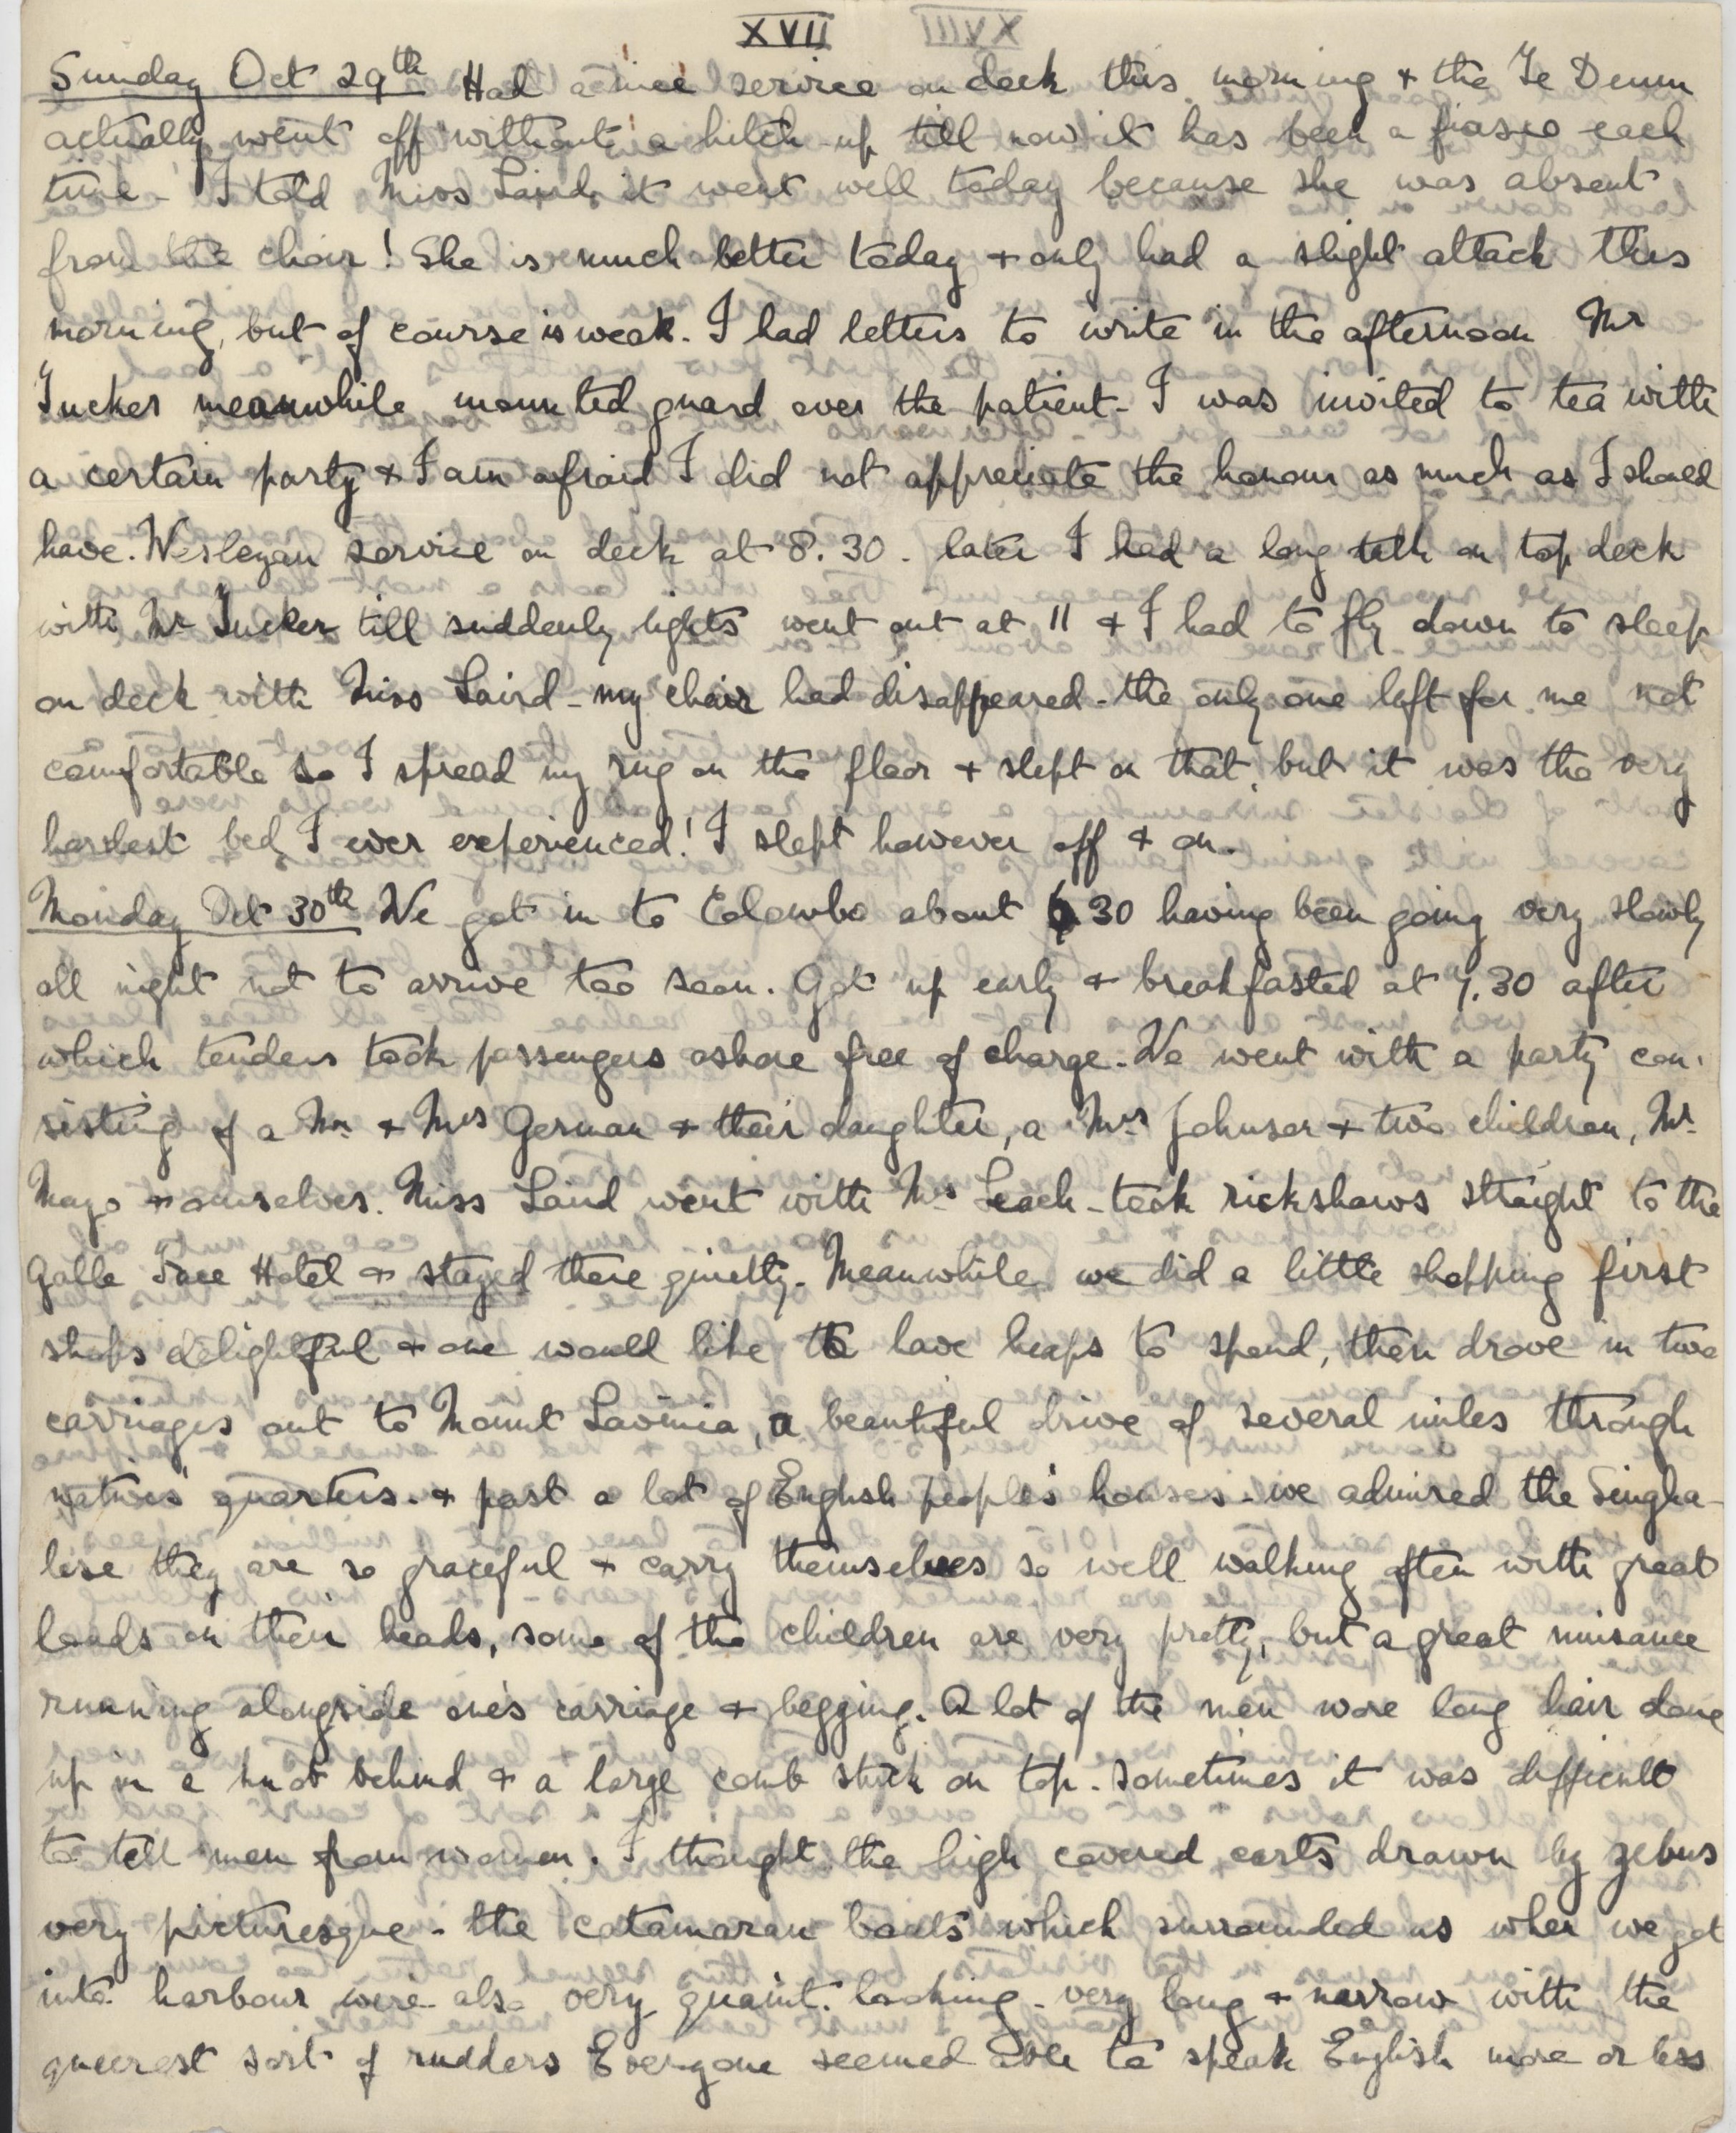 XVII
Sunday Oct 29th Had a nice service on deck this morning & the Te Deum
actually went off without a hitch - up till now it has been a fiasco each
time - I told Miss Laird, it went well today because she was absent
from the choir! She is much better today & only had a slight attack this
morning, but of course is weak. I had letters to write in the afternoon Mr
Tucker meanwhile mounted guard over the patient - I was invited to tea with
a certain party & I am afraid I did not appreciate the honour as much as I should
have. Wesleyan service on deck at 8.30. later I had a long talk on top deck
with Mr Tucker till suddenly lights went out at 11 & I had to fly down to sleep
on deck with Miss Laird - my chair had disappeared - the only one left for me not
comfortable so I spread my rug on the floor & slept on that, but it was the very
hardest bed I ever experienced! I slept however off & on.
Monday Oct 30th We got in to Colombo about 6.30 having been going very slowly
all night not to arrive too soon. Got up early & breakfasted at 7.30 after
which tenders took passengers ashore free of charge. We went with a party con-
sisting of a Mr & Mrs German & their daughter, a Mrs Johnson & two children, Mr
Mayo & ourselves. Miss Laird went with Mrs Leach - took rickshaws straight to the
Galle Face Hotel & stayed there quietly. Meanwhile we did a little shopping first
shops delightful & one would like to have heaps to spend, then drove in two
carriages out to Mount Lavinia, a beautiful drive of several miles through
natives' quarters. & past a lot of English people's houses - we admired the Singha-
lese they are so graceful & carry themselves so well walking often with great
loads on their heads, some of the children are very pretty, but a great nuisance
running alongside one's carriage & begging. A lot of the men wore long hair done
up in a knot behind & a large comb stuck on top - sometimes it was difficult
to tell men from women. I thought the high covered carts drawn by zebus
very picturesque - the catamaran boats which surrounded us when we got
into harbour were also very quaint. looking - very long & narrow with the
queerest sort of rudders Everyone seemed able to speak English more or less